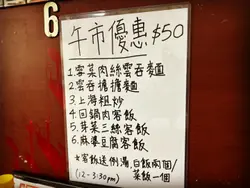 6
午市優惠 $50
1.雪菜肉絲雲吞麵
2.雲吞擔擔麵
3.上海粗炒
4.回鍋肉客飯
5.芽菜三絲客飯
6.麻婆豆腐客飯
*客飯送例湯,白飯兩個/
(12-3:30pm) 菜飯一個